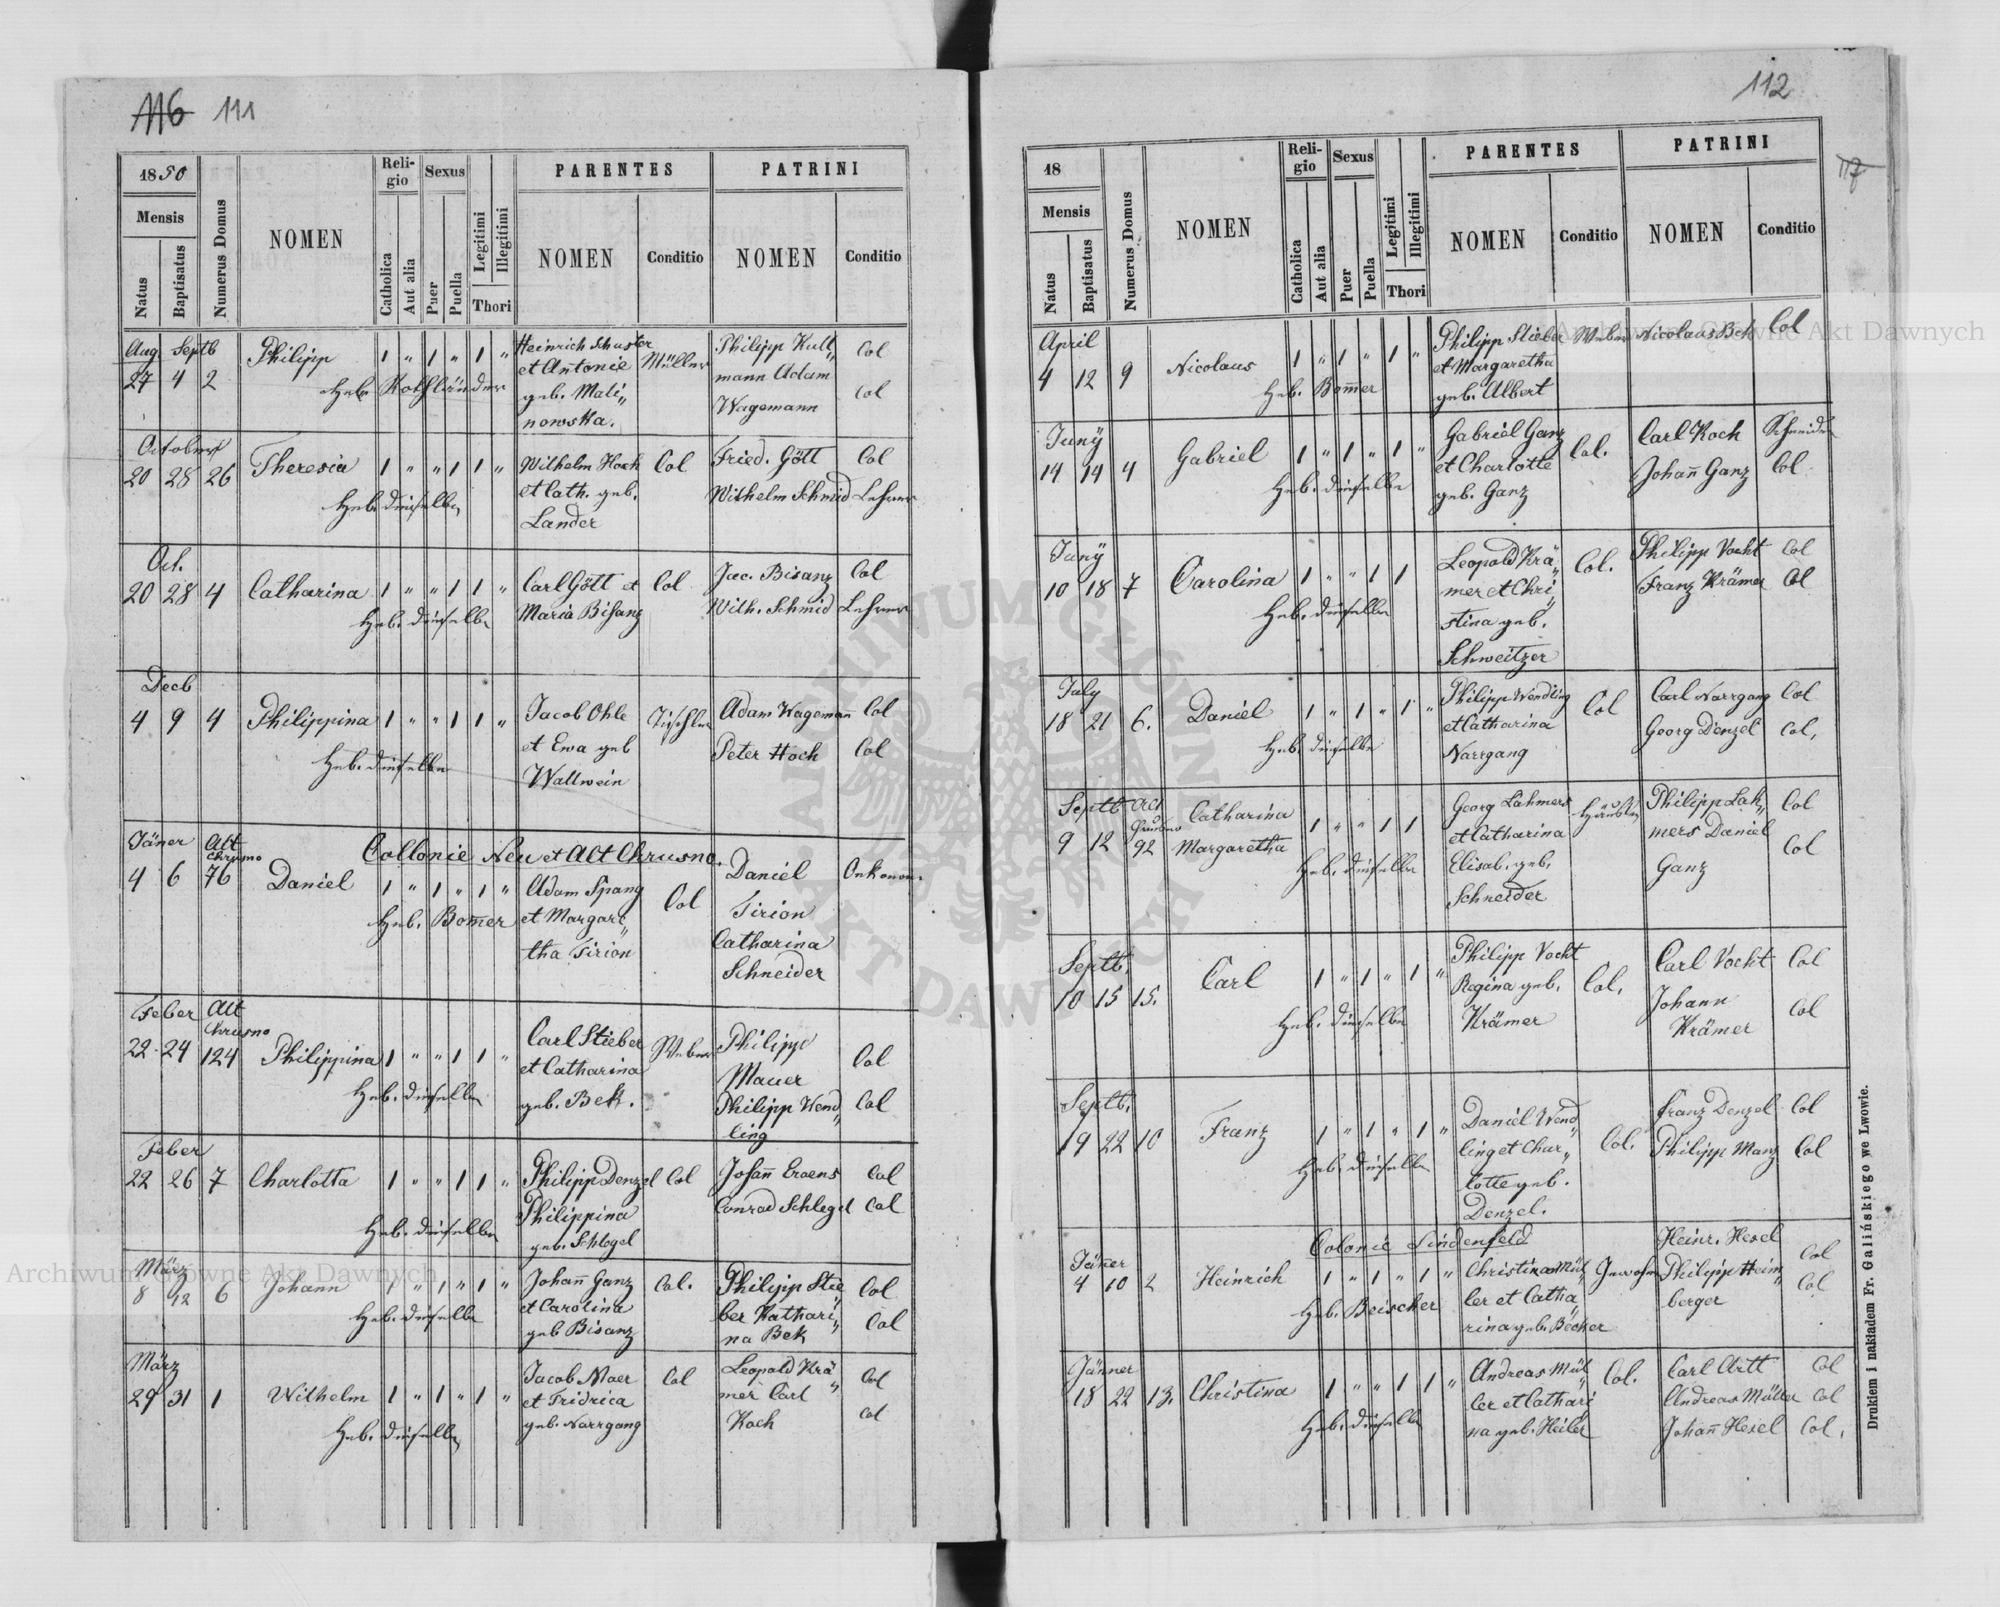 116 111
1850
Mensis
Natus
Baptisatus
Numerus Domus
NOMEN
Religio
Catholica
Aut alia
Sexus
Puer
Puella
Legitimi
Illegitimi
Thori
PARENTES
NOMEN
Conditio
PATRINI
NOMEN
Conditio
Aug. Septb
27 4 2 Philipp 1 " 1 " 1 " Heinrich Schuster Müller Philipp Kull„ Col
et Antonie mann Adam
geb. Mali„ Wagemann Col
nowska.
Heb. Rothländer
October
20 28 26 Theresia 1 " " 1 1 " Wilhelm Hoch Col Fried. Gött Col
et Cath. geb. Wilhelm Schmid Lehrer
Lander
Heb. dieselbe
Oct.
20 28 4 Catharina 1 " " 1 1 " Carl Gött et Col Jac. Bisanz Col
Maria Bisanz Wilh. Schmid Lehrer
Heb. dieselbe
Decb
4 9 4 Philippina 1 " " 1 1 " Jacob Ohle Tischler Adam Wagemann Col
et Ewa geb Peter Hoch Col
Wallwein
Heb. dieselbe
Collonie Neu et Alt Chrusno.
Jäner Alt Chrusno
4 6 76 Daniel 1 " 1 " 1 " Adam Spang Col Daniel Oekonom.
et Margare„ Sirion
tha Sirion Catharina
Schneider
Heb. Bom̄er
Feber Alt Chrusno
22 24 124 Philippina 1 " " 1 1 " Carl Stieber Weber Philipp Col
et Catharina Mauer
geb. Bek. Philipp Wend„ Col
ling
Heb. dieselbe
Feber
22 26 7 Charlotta 1 " " 1 1 " Philipp Denzel Col Johan̄ Eraens Col
Philippina Conrad Schlegel Col
geb. Schlegel
Heb. dieselbe
März
8 12 6 Johann 1 " 1 " 1 " Johan̄ Ganz Col. Philipp Stie Col
et Carolina ber Kathari„ Col
geb Bisanz na Bek
Heb. dieselbe
März
29 31 1 Wilhelm 1 " 1 " 1 " Jacob Maer Col Leopold Krä„ Col
et Fridrica mer Carl
geb. Narrgang Koch Col
Heb. dieselbe
112
117
18
Mensis
Natus
Baptisatus
Numerus Domus
NOMEN
Religio
Catholica
Aut alia
Sexus
Puer
Puella
Legitimi
Illegitimi
Thori
PARENTES
NOMEN
Conditio
PATRINI
NOMEN
Conditio
April
4 12 9 Nicolaus 1 " 1 " 1 " Philipp Stieber Weber Nicolaus Bek Col
et Margaretha
geb. Albert
Heb. Bom̄er
Juny
14 14 4 Gabriel 1 " 1 " 1 " Gabriel Ganz Col. Carl Koch Schneider
et Charlotte Johan̄ Ganz Col
geb. Ganz
Heb. dieselbe
Juny
10 18 7 Carolina 1 " " 1 1 Leopold Krä„ Col. Philipp Vocht Col
mer et Chri„ Franz Krämer Col
stina geb.
Schweitzer
Heb. dieselbe
July
18 21 6. Daniel 1 " 1 " 1 " Philipp Wendling Col Carl Narrgang Col
et Catharina Georg Denzel Col.
Narrgang
Heb. dieselbe
Septb
9 12 92 Catharina Margaretha 1 " " 1 1 Georg Lahmers Häusler Philipp Lah„ Col
et Catharina mers Daniel Col
Elisab. geb. Ganz
Schneider
Heb. dieselbe
Septb.
10 15 15. Carl 1 " 1 " 1 " Philipp Vocht Col. Carl Vocht Col
Regina geb. Johann
Krämer Krämer Col
Heb. dieselbe
Septb.
19 22 10 Franz 1 " 1 " 1 " Daniel Wend„ Col. Franz Denzel Col
ling et Char„ Philipp Manz Col
lotte geb.
Denzel.
Heb. dieselbe
Colonie Lindenfeld
Jäner
4 10 2 Heinrich 1 " 1 " 1 " Christian Mül„ Heinr. Hexel Col
ler et Catha Philipp Heim„ Col
rina geb. Becker berger
Heb. Beischer
Jänner
18 22 13. Christina 1 " " 1 1 " Andreas Mül„ Col. Carl Artt Col
ler et Cathari Andreas Müller Col
na geb. Heiler Johan̄ Hexel Col.
Heb. dieselbe
Drukiem i nakładem Fr. Galińskiego we Lwowie.
Archiwum Główne Akt Dawnych
Archiwum Główne Akt Dawnych
ARCHIWUM GŁÓWNE AKT DAWNYCH